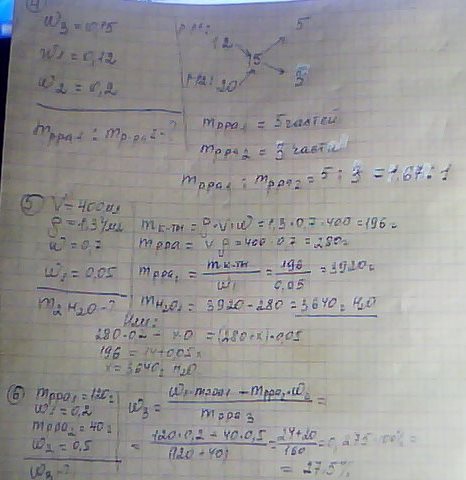 4
w3 = 0,15
w1 = 0,12
w2 = 0,2
mрра1 : mрра2 - ?
12
20
15
5
3
mрра1 = 5 частей
mрра2 = 3 части
mрра1 : mрра2 = 5 : 3 = 1,67 : 1
5
V = 400мл
w = 0.7
w1 = 0,05
m2 H2O - ?
mк-ты = ρ·V·w = 1,3·0,7·400 = 196г
mрра = V ρ = 400·0.7 = 280г
mрра1 = mк-ты / w1 = 196 / 0,05 = 3920г
mH2O = 3920 - 280 = 3640г H2O
Или:
= (280+x)·0,05
196 = 14+0,05x
x = 3640г H2O
6
mрра1 = 120г
w1 = 0,2
mрра2 = 40г
w2 = 0,5
w3 - ?
w3 =
mрра3
= 120·0,2 - 40·0,5 / (120 + 40) = 24+20 / 160 = 0,275·100% =
= 27,5%